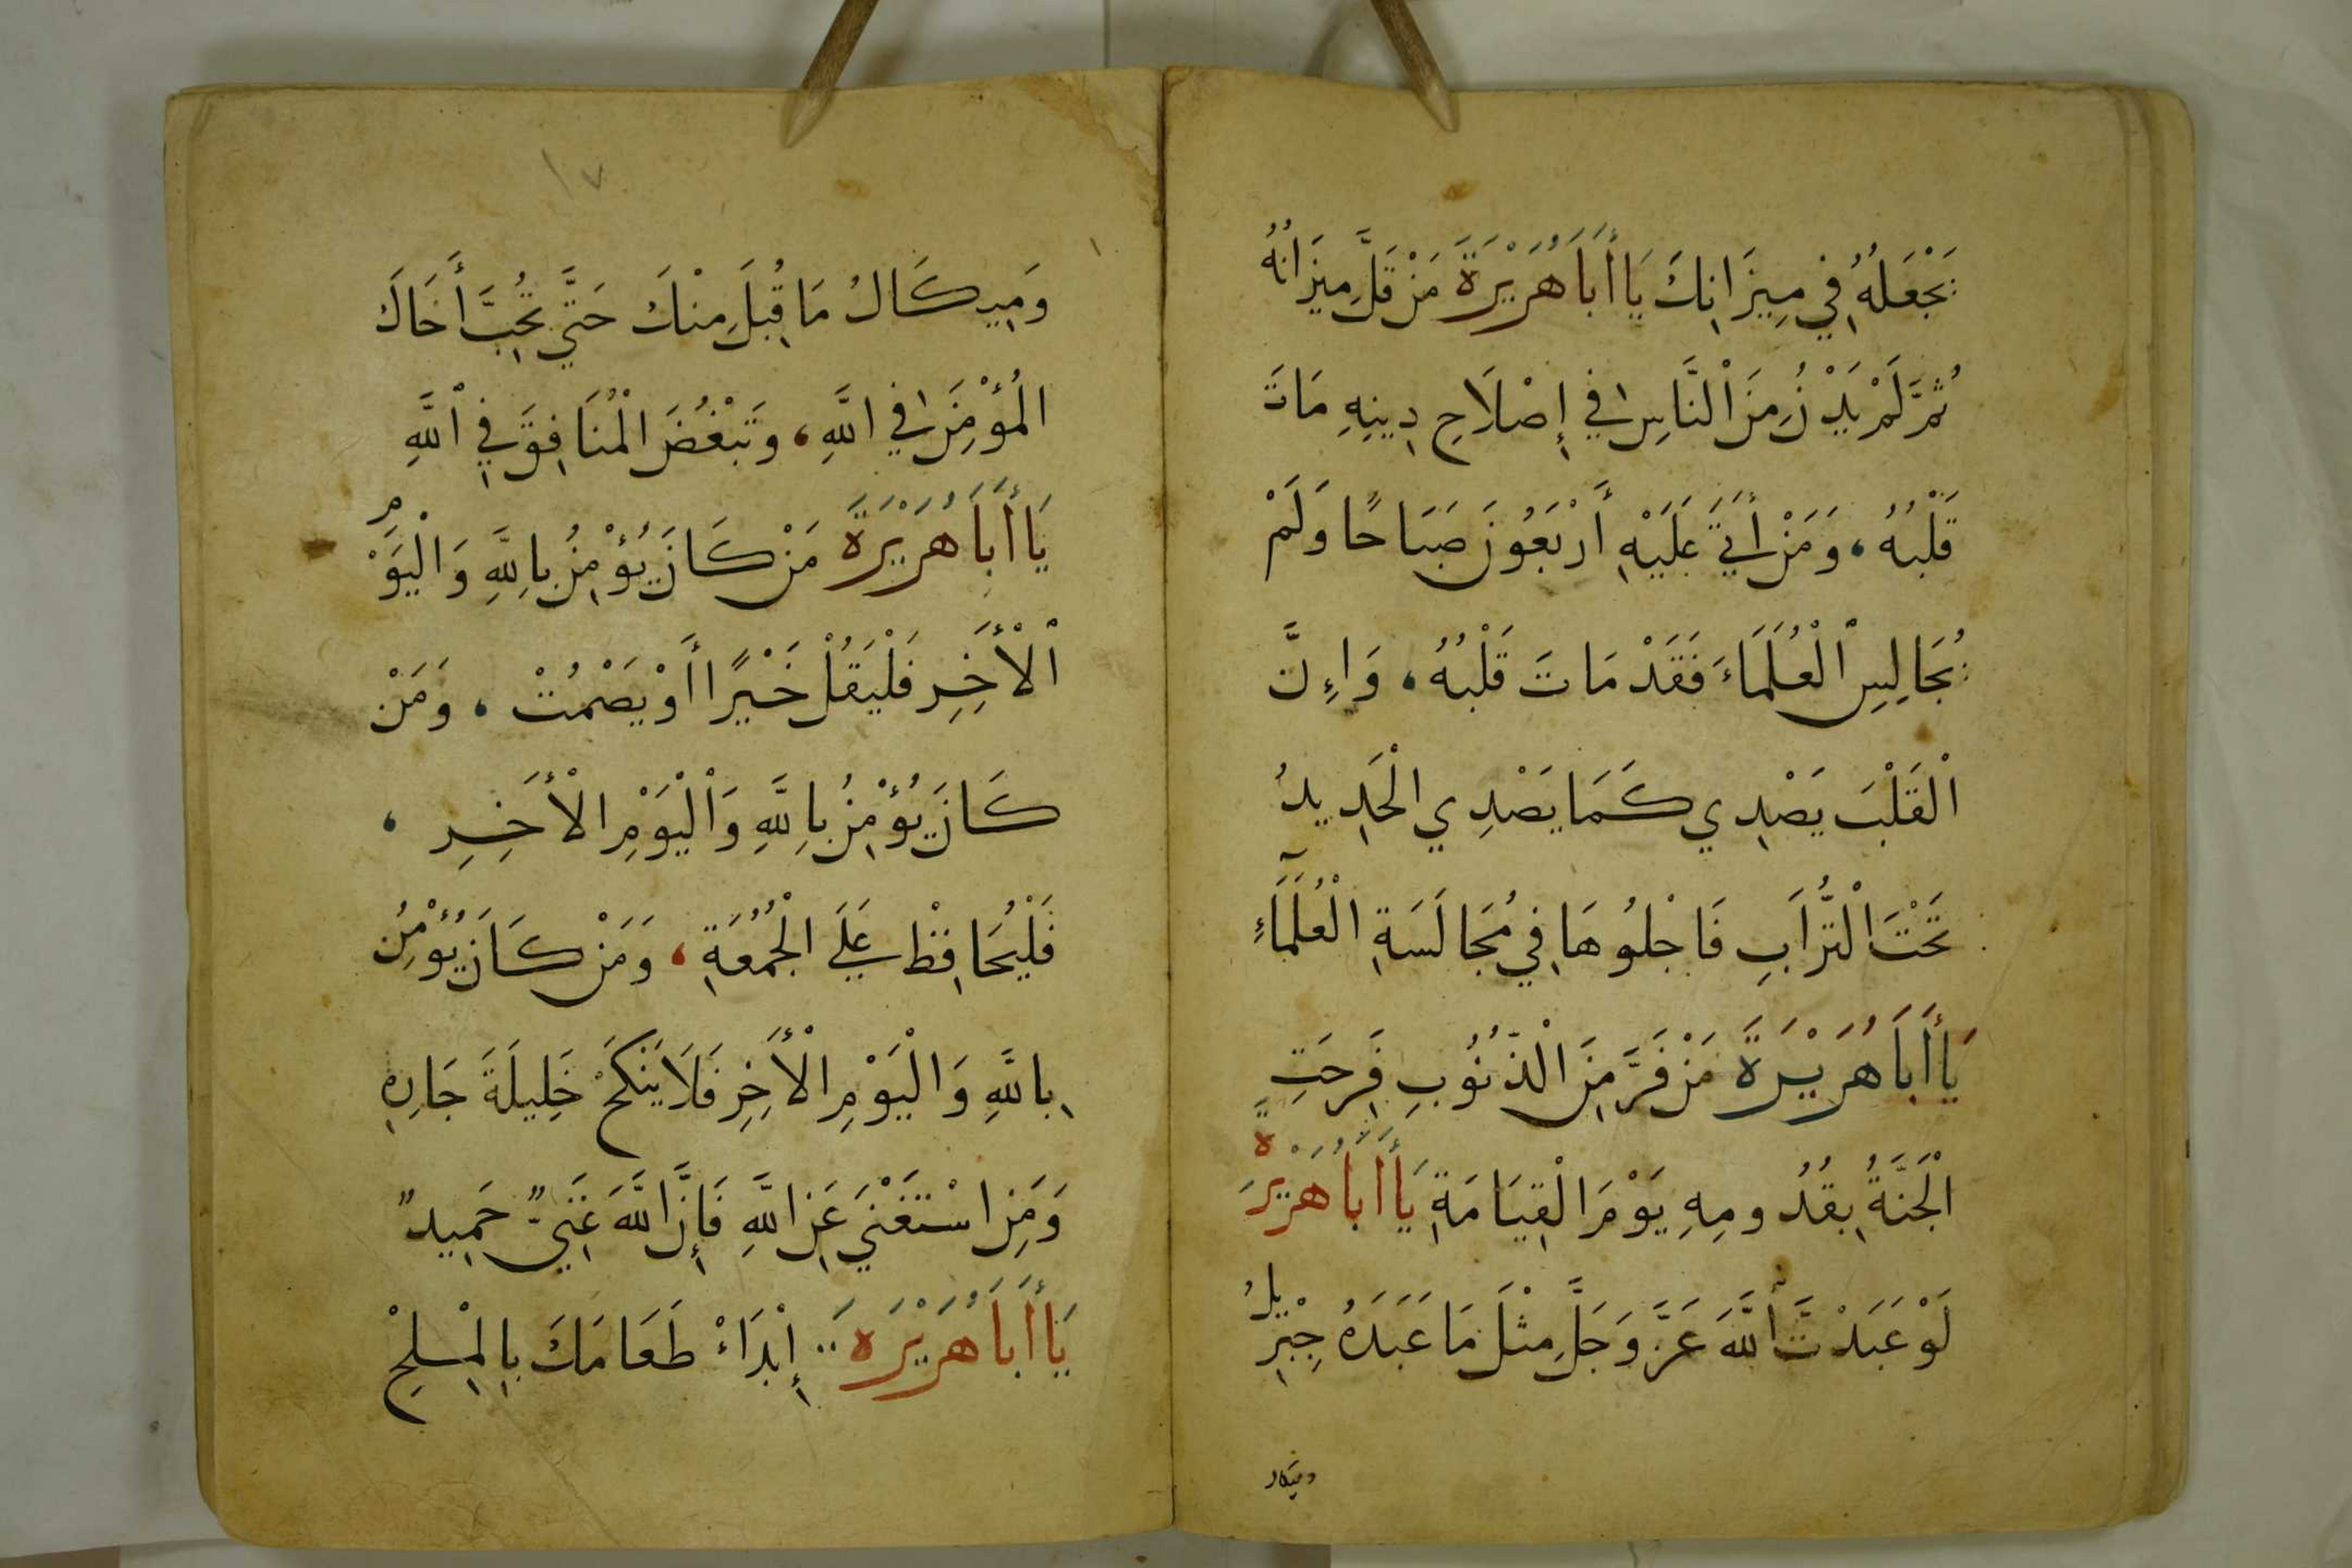 يَجْعَلُهُ فِي مِيزَانِكَ يَا أَبَا هُرَيْرَةَ مَنْ قَلَّ مِيزَانُهُ
ثُمَّ لَمْ يَدْنُ مِنَ النَّاسِ فِي إِصْلَاحِ دِينِهِ مَاتَ
قَلْبُهُ، وَمَنْ أَتَى عَلَيْهِ أَرْبَعُونَ صَبَاحًا وَلَمْ
يُجَالِسِ الْعُلَمَاءَ فَقَدْ مَاتَ قَلْبُهُ، وَإِنَّ
الْقَلْبَ يَصْدِي كَمَا يَصْدِي الْحَدِيدُ
تَحْتَ التُّرَابِ فَاجْلُوهَا فِي مُجَالَسَةِ الْعُلَمَاءِ
يَا أَبَا هُرَيْرَةَ مَنْ فَرَّ مِنَ الذُّنُوبِ فَرِحَتِ
الْجَنَّةُ بِقُدُومِهِ يَوْمَ الْقِيَامَةِ يَا أَبَا هُرَيْرَةَ
لَوْ عَبَدْتَ اللَّهَ عَزَّ وَجَلَّ مِثْلَ مَا عَبَدَهُ جِبْرِيلُ
وميكال
١٧
وَمِيكَالُ مَا قُبِلَ مِنْكَ حَتَّى تُحِبَّ أَخَاكَ
الْمُؤْمِنَ فِي اللَّهِ، وَتَبْغُضَ الْمُنَافِقَ فِي اللَّهِ
يَا أَبَا هُرَيْرَةَ مَنْ كَانَ يُؤْمِنُ بِاللَّهِ وَالْيَوْمِ
الْأَخِرِ فَلْيَقُلْ خَيْرًا أَوْ يَصْمُتْ، وَمَنْ
كَانَ يُؤْمِنُ بِاللَّهِ وَالْيَوْمِ الْأَخِرِ،
فَلْيُحَافِظْ عَلَى الْجُمُعَةِ، وَمَنْ كَانَ يُؤْمِنُ
بِاللَّهِ وَالْيَوْمِ الْأَخِرِ فَلَا يَنْكَحْ خَلِيلَةَ جَارِهِ
وَمَنِ اسْتَغْنَى عَنِ اللَّهِ فَإِنَّ اللَّهَ غَنِيٌّ حَمِيدٌ
يَا أَبَا هُرَيْرَه إِبْدَاءْ طَعَامَكَ بِالْمِلْحِ